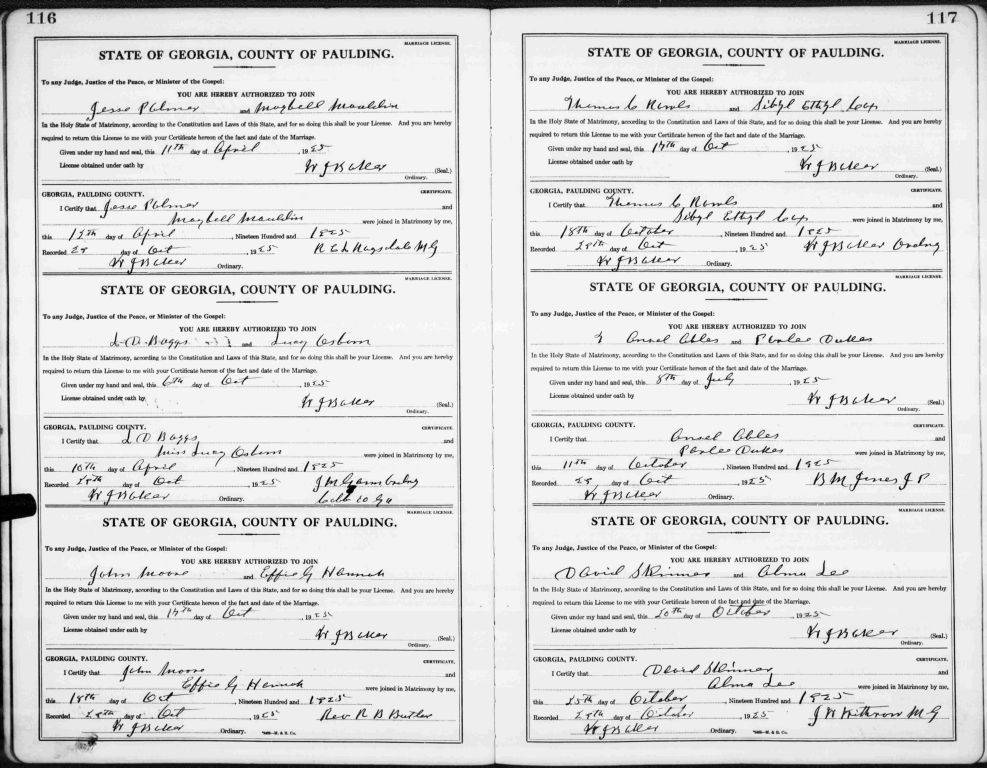 116
MARRIAGE LICENSE.
STATE OF GEORGIA, COUNTY OF PAULDING.
To any Judge, Justice of the Peace, or Minister of the Gospel:
YOU ARE HEREBY AUTHORIZED TO JOIN
Jesse Palmer and Maybell Mauldin
In the Holy State of Matrimony, according to the Constitution and Laws of this State, and for so doing this shall be your License. And you are hereby
required to return this License to me with your Certificate hereon of the fact and date of the Marriage.
Given under my hand and seal, this 11th day of April, 1925
License obtained under oath by W J Baker (Seal.)
Ordinary.
GEORGIA, PAULDING COUNTY. CERTIFICATE.
I Certify that Jesse Palmer and
Maybell Mauldin were joined in Matrimony by me,
this 12th day of April, Nineteen Hundred and 1925
Recorded 28 day of Oct, 1925 R E L Ragsdale M G
W J Baker Ordinary.
MARRIAGE LICENSE.
STATE OF GEORGIA, COUNTY OF PAULDING.
To any Judge, Justice of the Peace, or Minister of the Gospel:
YOU ARE HEREBY AUTHORIZED TO JOIN
L D Baggs and Lucy Osburn
In the Holy State of Matrimony, according to the Constitution and Laws of this State, and for so doing this shall be your License. And you are hereby
required to return this License to me with your Certificate hereon of the fact and date of the Marriage.
Given under my hand and seal, this 6th day of Oct, 1925
License obtained under oath by W J Baker (Seal.)
Ordinary.
GEORGIA, PAULDING COUNTY. CERTIFICATE.
I Certify that L D Baggs and
Miss Lucy Osburn were joined in Matrimony by me,
this 10th day of April, Nineteen Hundred and 1925
Recorded 28th day of Oct, 1925 J M Ordny
W J Baker Ordinary. Cobb Co Ga
MARRIAGE LICENSE.
STATE OF GEORGIA, COUNTY OF PAULDING.
To any Judge, Justice of the Peace, or Minister of the Gospel:
YOU ARE HEREBY AUTHORIZED TO JOIN
John Moore and Effie G Hannah
In the Holy State of Matrimony, according to the Constitution and Laws of this State, and for so doing this shall be your License. And you are hereby
required to return this License to me with your Certificate hereon of the fact and date of the Marriage.
Given under my hand and seal, this 17th day of Oct, 1925
License obtained under oath by W J Baker (Seal.)
Ordinary.
GEORGIA, PAULDING COUNTY. CERTIFICATE.
I Certify that John Moore and
Effie G Hannah were joined in Matrimony by me,
this 18th day of Oct, Nineteen Hundred and 1925
Recorded 28th day of Oct, 1925 Rev R B Butler
W J Baker Ordinary.
117
MARRIAGE LICENSE.
STATE OF GEORGIA, COUNTY OF PAULDING.
To any Judge, Justice of the Peace, or Minister of the Gospel:
YOU ARE HEREBY AUTHORIZED TO JOIN
Thomas C and Sibyl Ethyl
In the Holy State of Matrimony, according to the Constitution and Laws of this State, and for so doing this shall be your License. And you are hereby
required to return this License to me with your Certificate hereon of the fact and date of the Marriage.
Given under my hand and seal, this 17th day of Oct, 1925
License obtained under oath by W J Baker (Seal.)
Ordinary.
GEORGIA, PAULDING COUNTY. CERTIFICATE.
I Certify that Thomas C and
Sibyl Ethyl were joined in Matrimony by me,
this 18th day of October, Nineteen Hundred and 1925
Recorded 28th day of Oct, 1925 W J Baker Ordny
W J Baker Ordinary.
MARRIAGE LICENSE.
STATE OF GEORGIA, COUNTY OF PAULDING.
To any Judge, Justice of the Peace, or Minister of the Gospel:
YOU ARE HEREBY AUTHORIZED TO JOIN
Ansel Ables and Perlee Dukes
In the Holy State of Matrimony, according to the Constitution and Laws of this State, and for so doing this shall be your License. And you are hereby
required to return this License to me with your Certificate hereon of the fact and date of the Marriage.
Given under my hand and seal, this 8th day of July, 1925
License obtained under oath by W J Baker (Seal.)
Ordinary.
GEORGIA, PAULDING COUNTY. CERTIFICATE.
I Certify that Ansel Ables and
Perlee Dukes were joined in Matrimony by me,
this 11th day of October, Nineteen Hundred and 1925
Recorded 28 day of Oct, 1925 B M Jones J P
W J Baker Ordinary.
MARRIAGE LICENSE.
STATE OF GEORGIA, COUNTY OF PAULDING.
To any Judge, Justice of the Peace, or Minister of the Gospel:
YOU ARE HEREBY AUTHORIZED TO JOIN
David Skinner and Alma Lee
In the Holy State of Matrimony, according to the Constitution and Laws of this State, and for so doing this shall be your License. And you are hereby
required to return this License to me with your Certificate hereon of the fact and date of the Marriage.
Given under my hand and seal, this 20th day of October, 1925
License obtained under oath by W J Baker (Seal.)
Ordinary.
GEORGIA, PAULDING COUNTY. CERTIFICATE.
I Certify that David Skinner and
Alma Lee were joined in Matrimony by me,
this 25th day of October, Nineteen Hundred and 1925
Recorded 28th day of October, 1925 J W Withrow M G
W J Baker Ordinary.